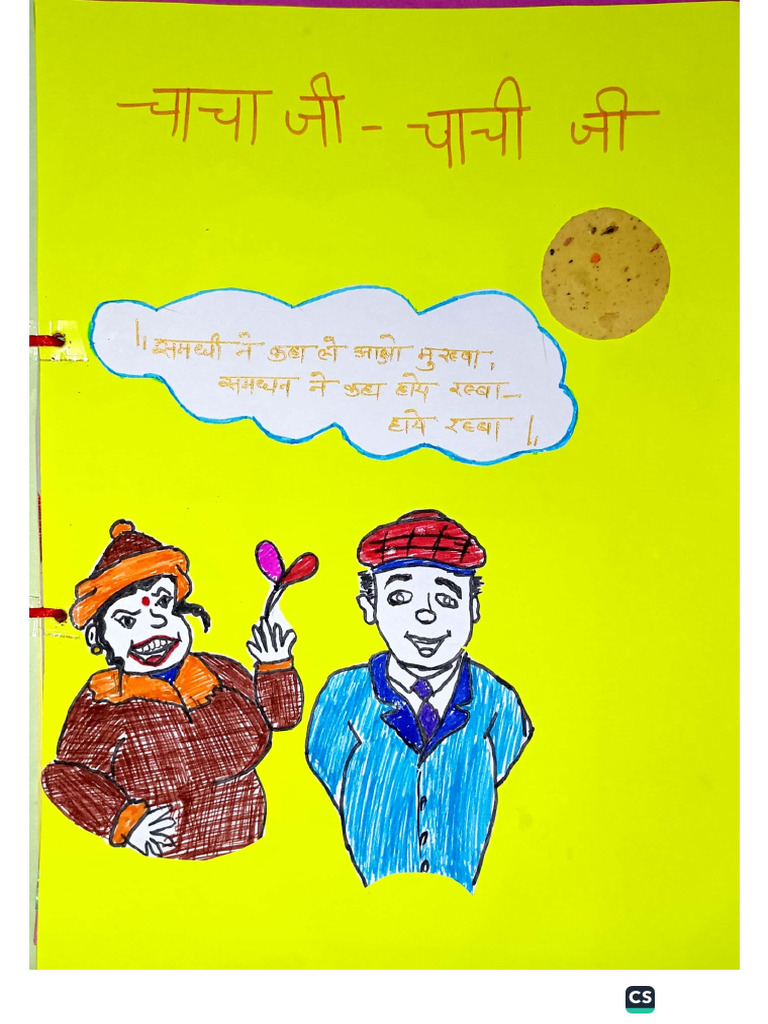 चाचा जी - चाची जी
"समधी ने कहा ले आओ मुरब्बा,
समधन ने कहा हाये रब्बा -
हाये रब्बा"
CS